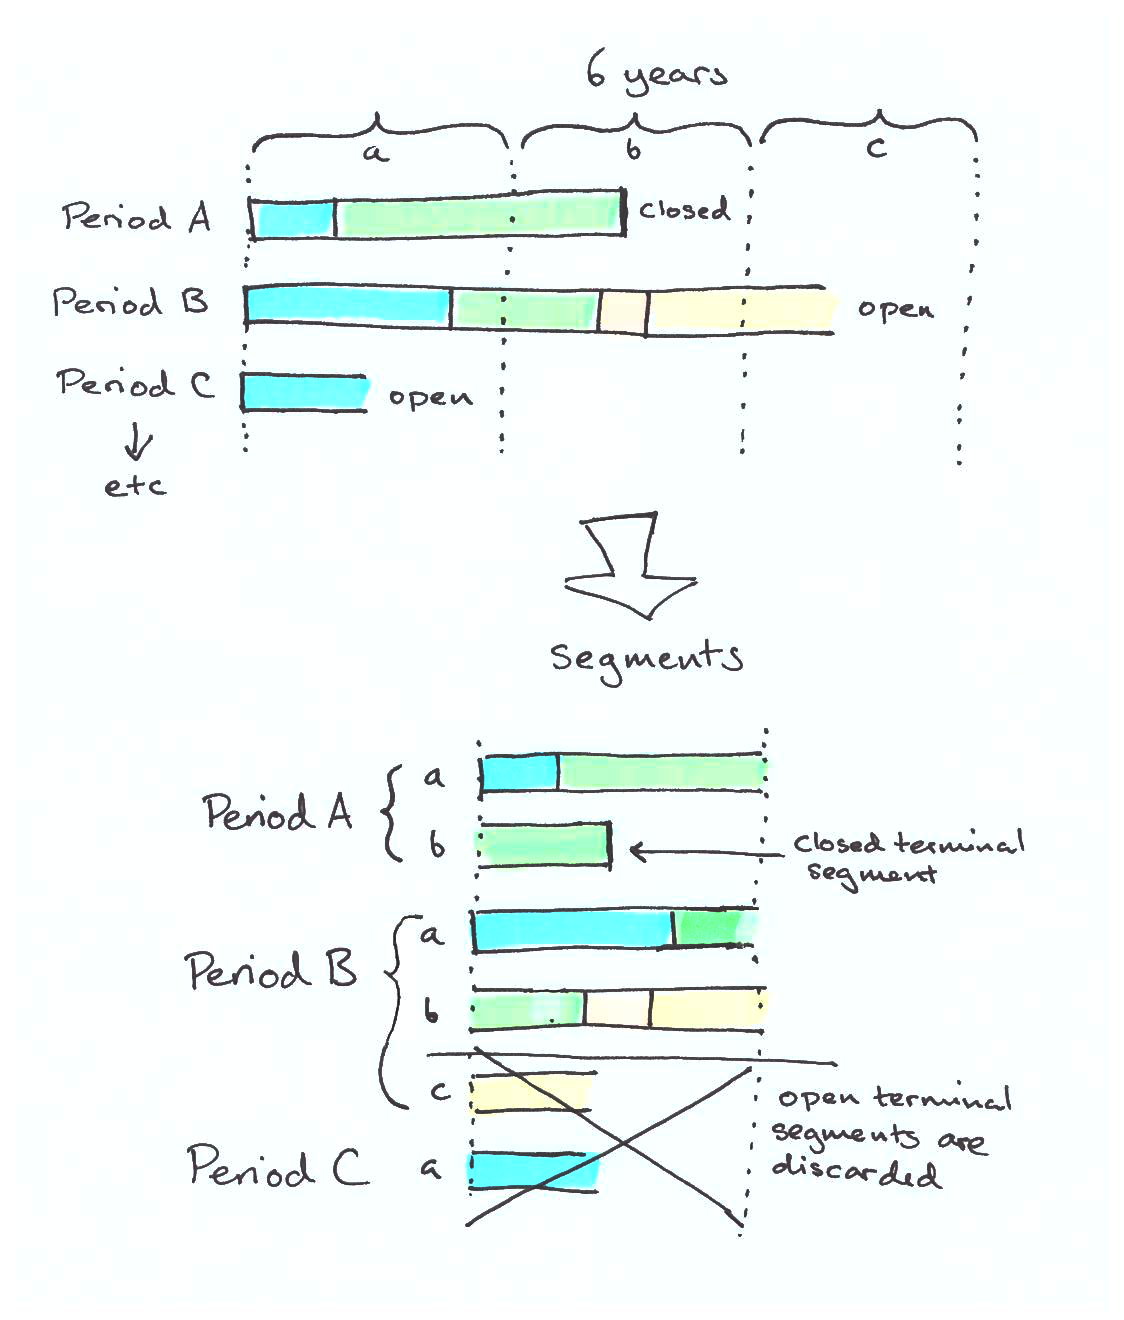 6 years
a b c
Period A closed
Period B open
Period C open
etc
Segments
Period A a
b closed terminal
segment
Period B a
b
c open terminal
segments are
discarded
Period C a